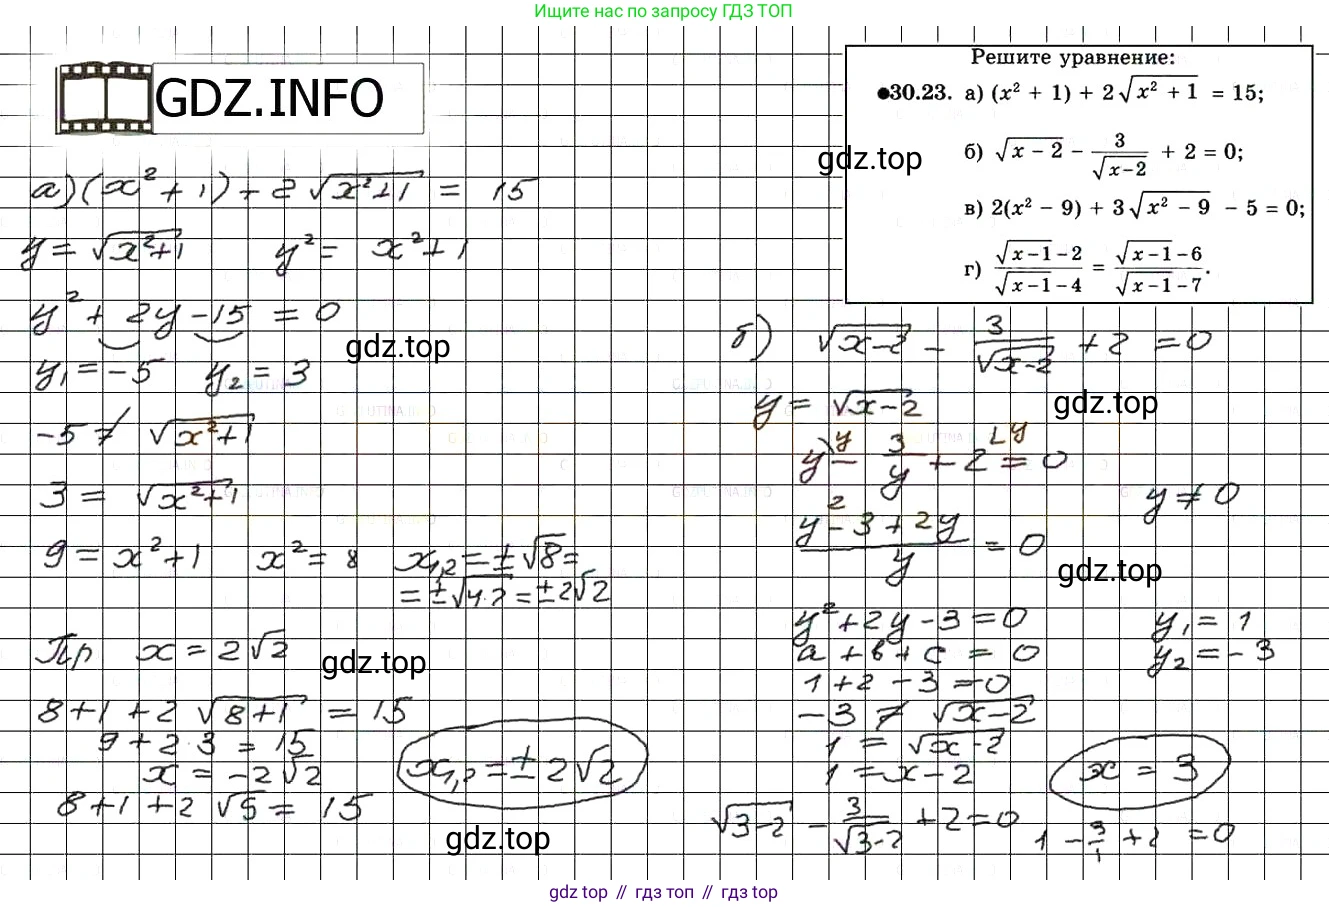 Ищите нас по запросу ГДЗ ТОП
GDZ.INFO
Решите уравнение:
●30.23. а) (x² + 1) + 2√(x² + 1) = 15;
б) √(x − 2) − 3/√(x−2) + 2 = 0;
в) 2(x² − 9) + 3√(x² − 9) − 5 = 0;
г) (√(x−1) −2)/(√(x−1) −4) = (√(x−1) −6)/(√(x−1) −7).
gdz.top
а) (x² + 1) + 2√(x²+1) = 15
y = √(x²+1) y² = x² + 1
y² + 2y − 15 = 0
gdz.top
y₁ = −5 y₂ = 3
−5 ≠ √(x²+1)
3 = √(x²+1)
9 = x² + 1 x² = 8 x₁,₂ = ± √8 =
= ±√(4·2) = ±2√2
Пр x = 2√2
gdz.top
8 + 1 + 2 √(8+1) = 15
9 + 2·3 = 15
x = −2√2
8 + 1 + 2 √9 = 15
x₁,₂ = ± 2√2
gdz.top
б) √(x−2) − 3/√(x−2) + 2 = 0
y = √(x−2)
gdz.top
y − 3/y + 2 = 0
y ≠ 0
(y² − 3 + 2y)/y = 0
gdz.top
y² + 2y − 3 = 0 y₁ = 1
a + b + c = 0 y₂ = −3
1 + 2 − 3 = 0
−3 ≠ √(x−2)
1 = √(x−2)
1 = x − 2
x = 3
√(3−2) − 3/√(3−2) + 2 = 0 1 − 3/1 + 2 = 0
gdz top // гдз топ // gdz top